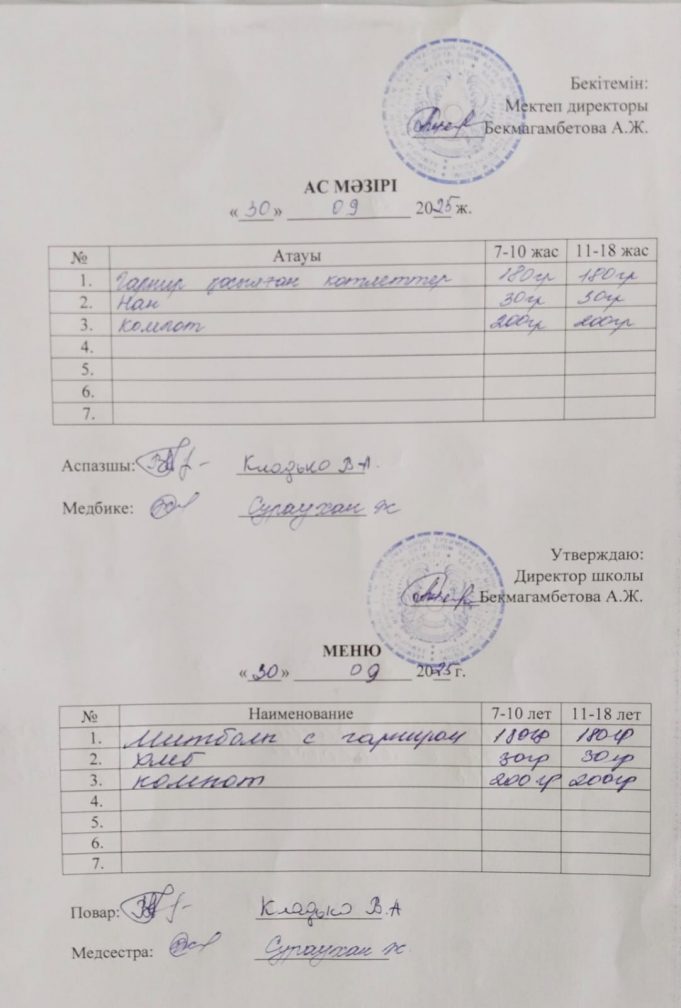 Бекітемін:
Мектеп директоры
Бекмагамбетова А.Ж.
АС МӘЗІРІ
«30» 09 2025 ж.
№ Атауы 7-10 жас 11-18 жас
1. Гарнир қосылған котлеттер 180гр 180гр
2. Нан 30гр 30гр
3. Компот 200гр 200гр
4.
5.
6.
7.
Аспазшы: Кладько В.А.
Медбике: Сураухан Ж
Утверждаю:
Директор школы
Бекмагамбетова А.Ж.
МЕНЮ
«30» 09 2025 г.
№ Наименование 7-10 лет 11-18 лет
1. Митболы с гарниром 180гр 180гр
2. хлеб 30гр 30гр
3. компот 200гр 200гр
4.
5.
6.
7.
Повар: Кладько В.А
Медсестра: Сураухан Ж